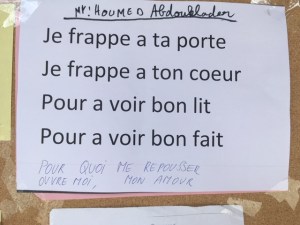 Mr: HOUMED Abdoulkader
Je frappe a ta porte
Je frappe a ton coeur
Pour a voir bon lit
Pour a voir bon fait
POUR QUOI ME REPOUSSER
OUVRE MOI, MON AMOUR